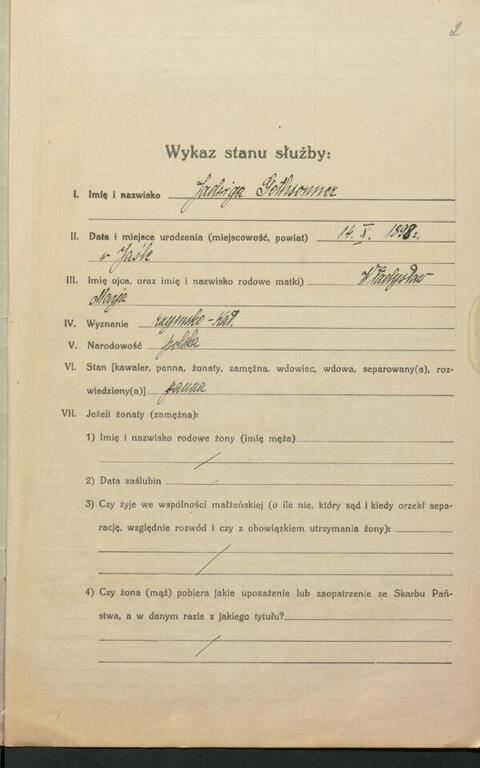 2
Wykaz stanu służby:
I. Imię i nazwisko Jadwiga
II. Data i miejsce urodzenia (miejscowość, powiat) 14. X. 1898 r.
w Jaśle
III. Imię ojca, oraz imię i nazwisko rodowe matki) Władysław
Marja
IV. Wyznanie rzymsko-kat.
V. Narodowość polska
VI. Stan [kawaler, panna, żonaty, zamężna, wdowiec, wdowa, separowany(a), roz-
wiedziony(a)] panna
VII. Jeżeli żonaty (zamężna):
1) Imię i nazwisko rodowe żony (imię męża)
/
2) Data zaślubin
3) Czy żyje we wspólności małżeńskiej (o ile nie, który sąd i kiedy orzekł sepa-
rację, względnie rozwód i czy z obowiązkiem utrzymania żony):
/
4) Czy żona (mąż) pobiera jakie uposażenie lub zaopatrzenie ze Skarbu Pań-
stwa, a w danym razie z jakiego tytułu?
/